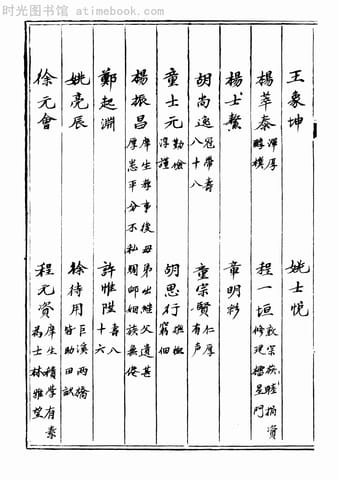 时光图书馆 - atimebook.com
王象坤 姚士悦
楊莘泰 渾厚醇樸 程一垣 敦宗族睦捐資修理櫺星門
楊士鰲 章明
胡尚逸 冠帶壽八十八 童宗賢 仁厚有声
童士元 勤儉淳謹 胡思行 撫窮佃
楊振昌 庠生恭事後母 弟出 父遺甚厚恙平分不私 賙邱姻族無倦
鄭起淵 許惟陞 壽八十六
姚亮辰 徐待用 巨溪兩橋皆助田試
徐元會 程元資 庠生積學有素為士林雅望